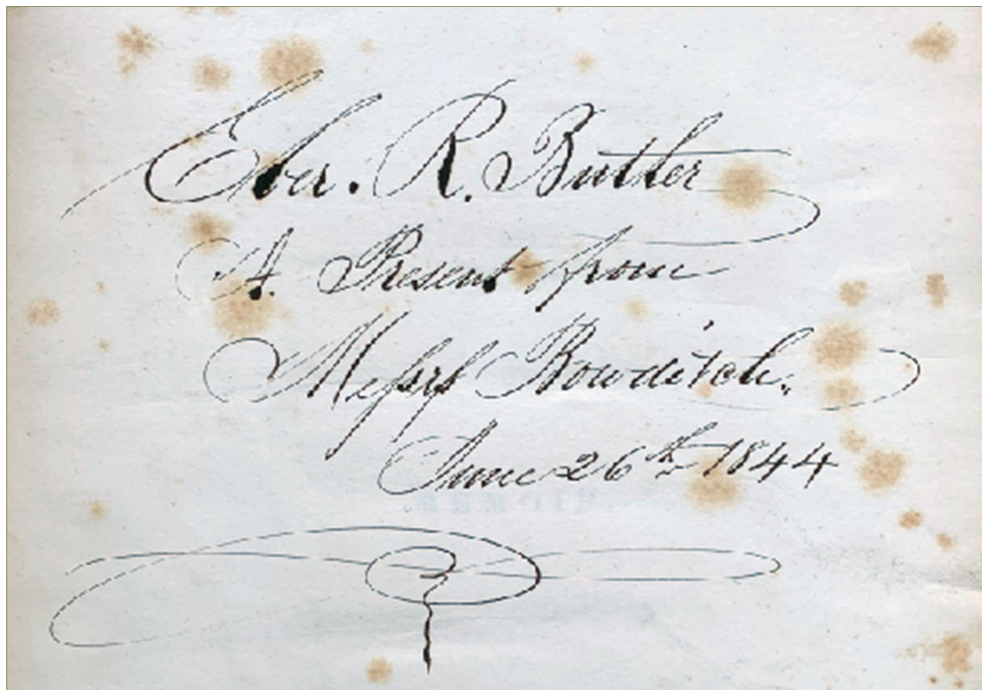 Eber. R. Butler
A. Present from
Messrs Bowditch.
June 26th 1844